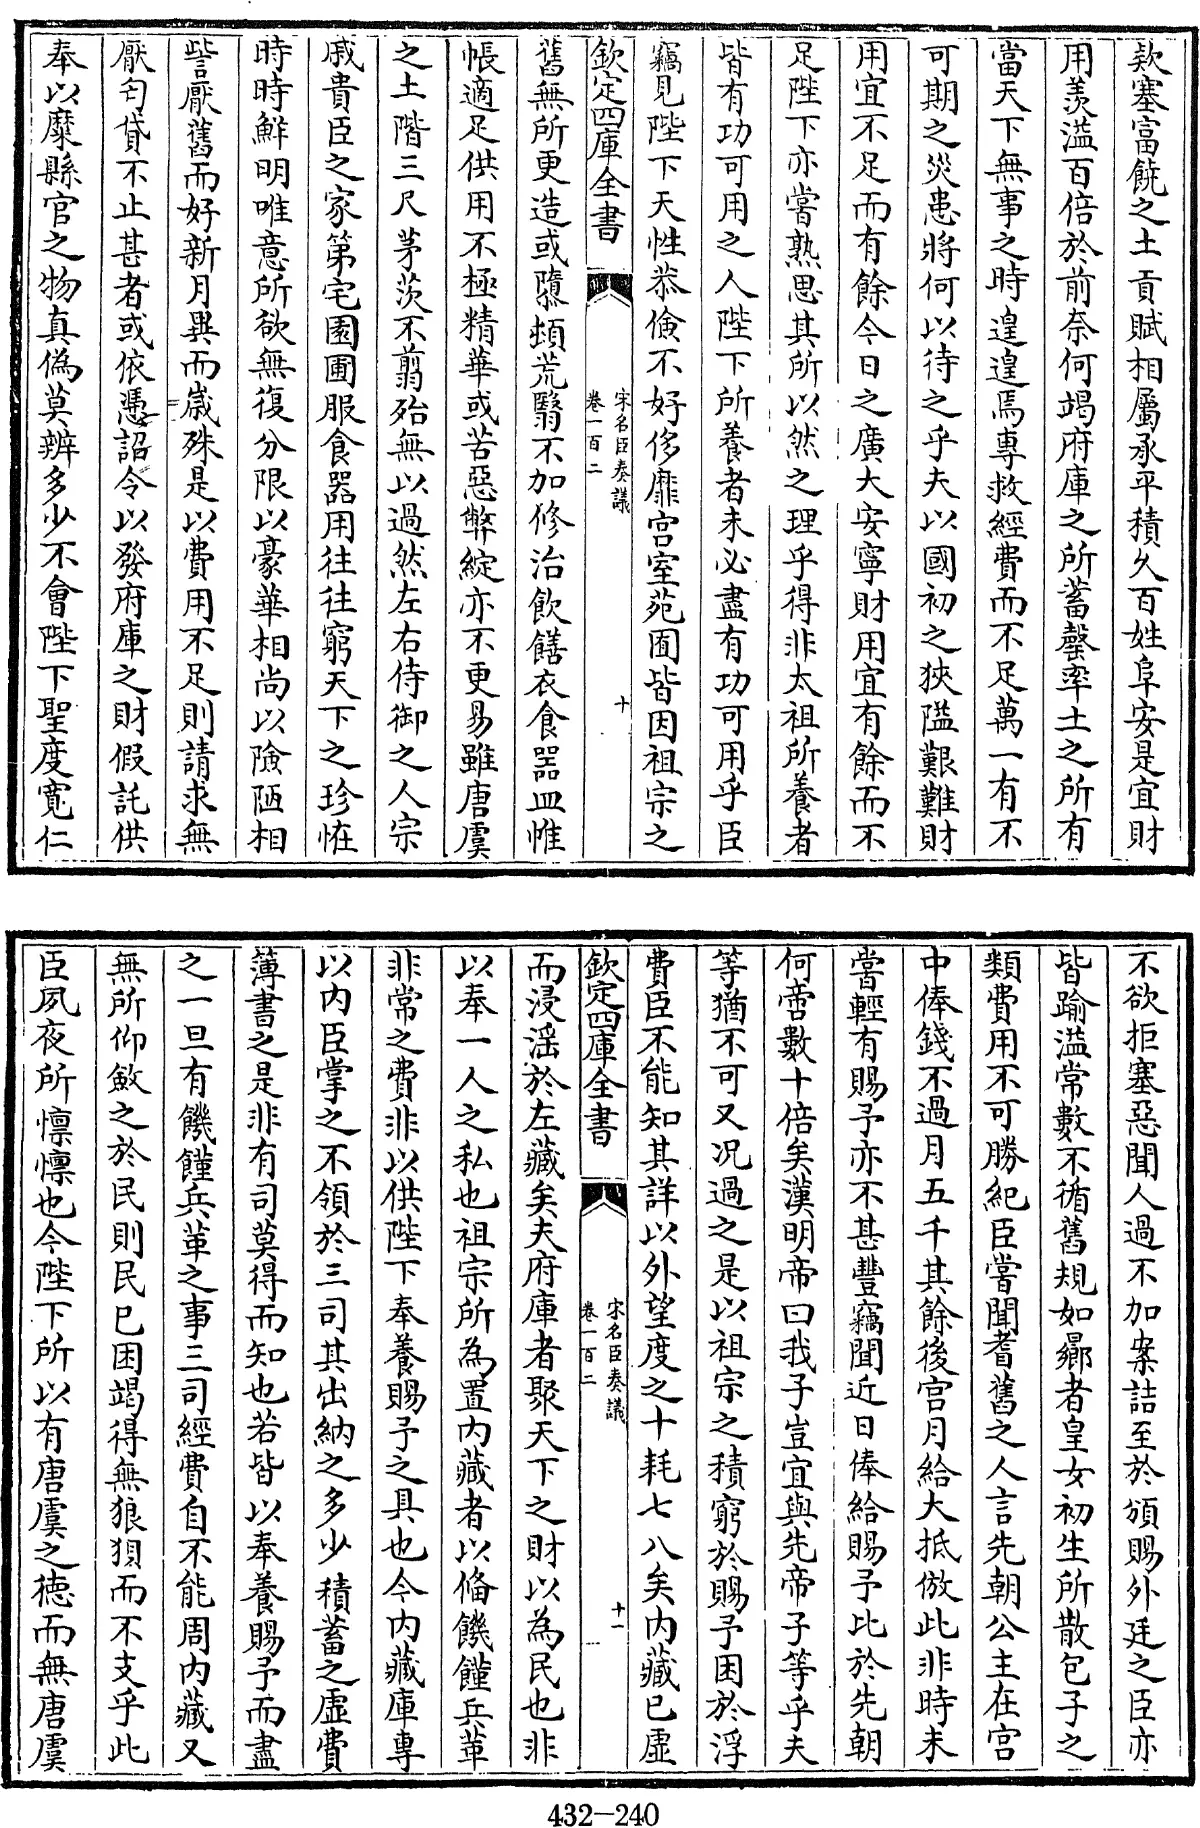 欵塞富饒之土貢賦相屬承平積久百姓阜安是宜財
用羨溢百倍於前奈何竭府庫之所蓄罄率土之所有
當天下無事之時遑遑焉專救經費而不足萬一有不
可期之災患將何以待之乎夫以國初之狹隘艱難財
用宜不足而有餘今日之廣大安寧財用宜有餘而不
足陛下亦嘗熟思其所以然之理乎得非太祖所養者
皆有功可用之人陛下所養者未必盡有功可用乎臣
竊見陛下天性恭儉不好侈靡宫室苑囿皆因祖宗之
欽定四庫全書
宋名臣奏議
卷一百二
十
舊無所更造或隳頓荒翳不加修治飲饍衣食器皿惟
帳適足供用不極精華或苦惡弊綻亦不更易雖唐虞
之土階三尺茅茨不翦殆無以過然左右侍御之人宗
戚貴臣之家第宅園圃服食器用往往窮天下之珍恠
時時鮮明唯意所欲無復分限以豪華相尚以險陋相
訾厭舊而好新月異而歳殊是以費用不足則請求無
厭匄貸不止甚者或依憑詔令以發府庫之財假託供
奉以糜縣官之物真偽莫辨多少不會陛下聖度寛仁
不欲拒塞惡聞人過不加案詰至於頒賜外廷之臣亦
皆踰溢常數不循舊規如曏者皇女初生所散包子之
類費用不可勝紀臣嘗聞耆舊之人言先朝公主在宫
中俸錢不過月五千其餘後宫月給大抵倣此非時未
嘗輕有賜予亦不甚豐竊聞近日俸給賜予比於先朝
何啻數十倍矣漢明帝曰我子豈宜與先帝子等乎夫
等猶不可又况過之是以祖宗之積窮於賜予困於浮
費臣不能知其詳以外望度之十耗七八矣内藏已虛
欽定四庫全書
宋名臣奏議
卷一百二
十一
而浸滛於左藏矣夫府庫者聚天下之財以為民也非
以奉一人之私也祖宗所為置内藏者以備饑饉兵革
非常之費非以供陛下奉養賜予之具也今内藏庫專
以内臣掌之不領於三司其出納之多少積蓄之虛費
簿書之是非有司莫得而知也若皆以奉養賜予而盡
之一旦有饑饉兵革之事三司經費自不能周内藏又
無所仰斂之於民則民已困竭得無狼狽而不支乎此
臣夙夜所懍懍也今陛下所以有唐虞之德而無唐虞
432-240